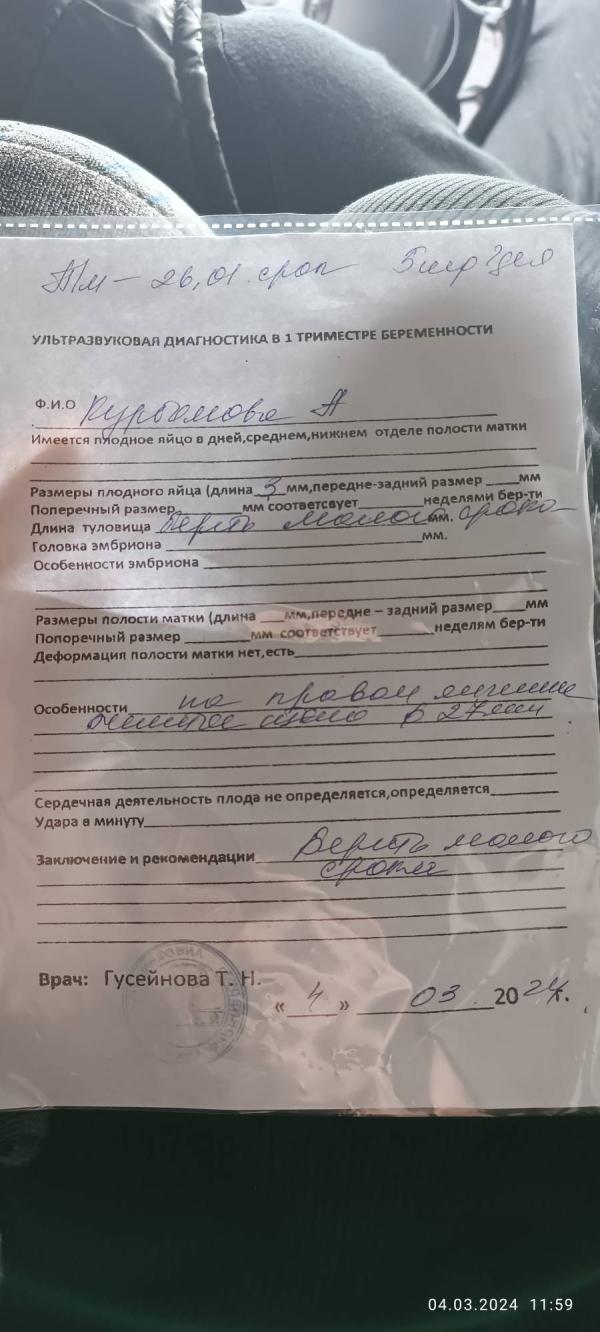 26,01. срок
УЛЬТРАЗВУКОВАЯ ДИАГНОСТИКА В 1 ТРИМЕСТРЕ БЕРЕМЕННОСТИ
Ф.И.О Курбанова А
Имеется плодное яйцо в дней,среднем,нижнем отделе полости матки
Размеры плодного яйца (длина 3 мм,передне-задний размер ____мм
Поперечный размер________мм соответсвует________неделями бер-ти
Длина туловища Берть малого срока мм.
Головка эмбриона ________мм.
Особенности эмбриона ________
Размеры полости матки (длина ___мм,передне – задний размер____мм
Попоречный размер ________мм соответствует_______неделям бер-ти
Деформация полости матки нет,есть________
Особенности на правом яичнике
желтое тело в 27мм
Сердечная деятельность плода не определяется,определяется________
Удара в минуту________
Заключение и рекомендации Берть малого
срока
Врач: Гусейнова Т. Н.
« 4 » 03. 2024г.
04.03.2024 11:59